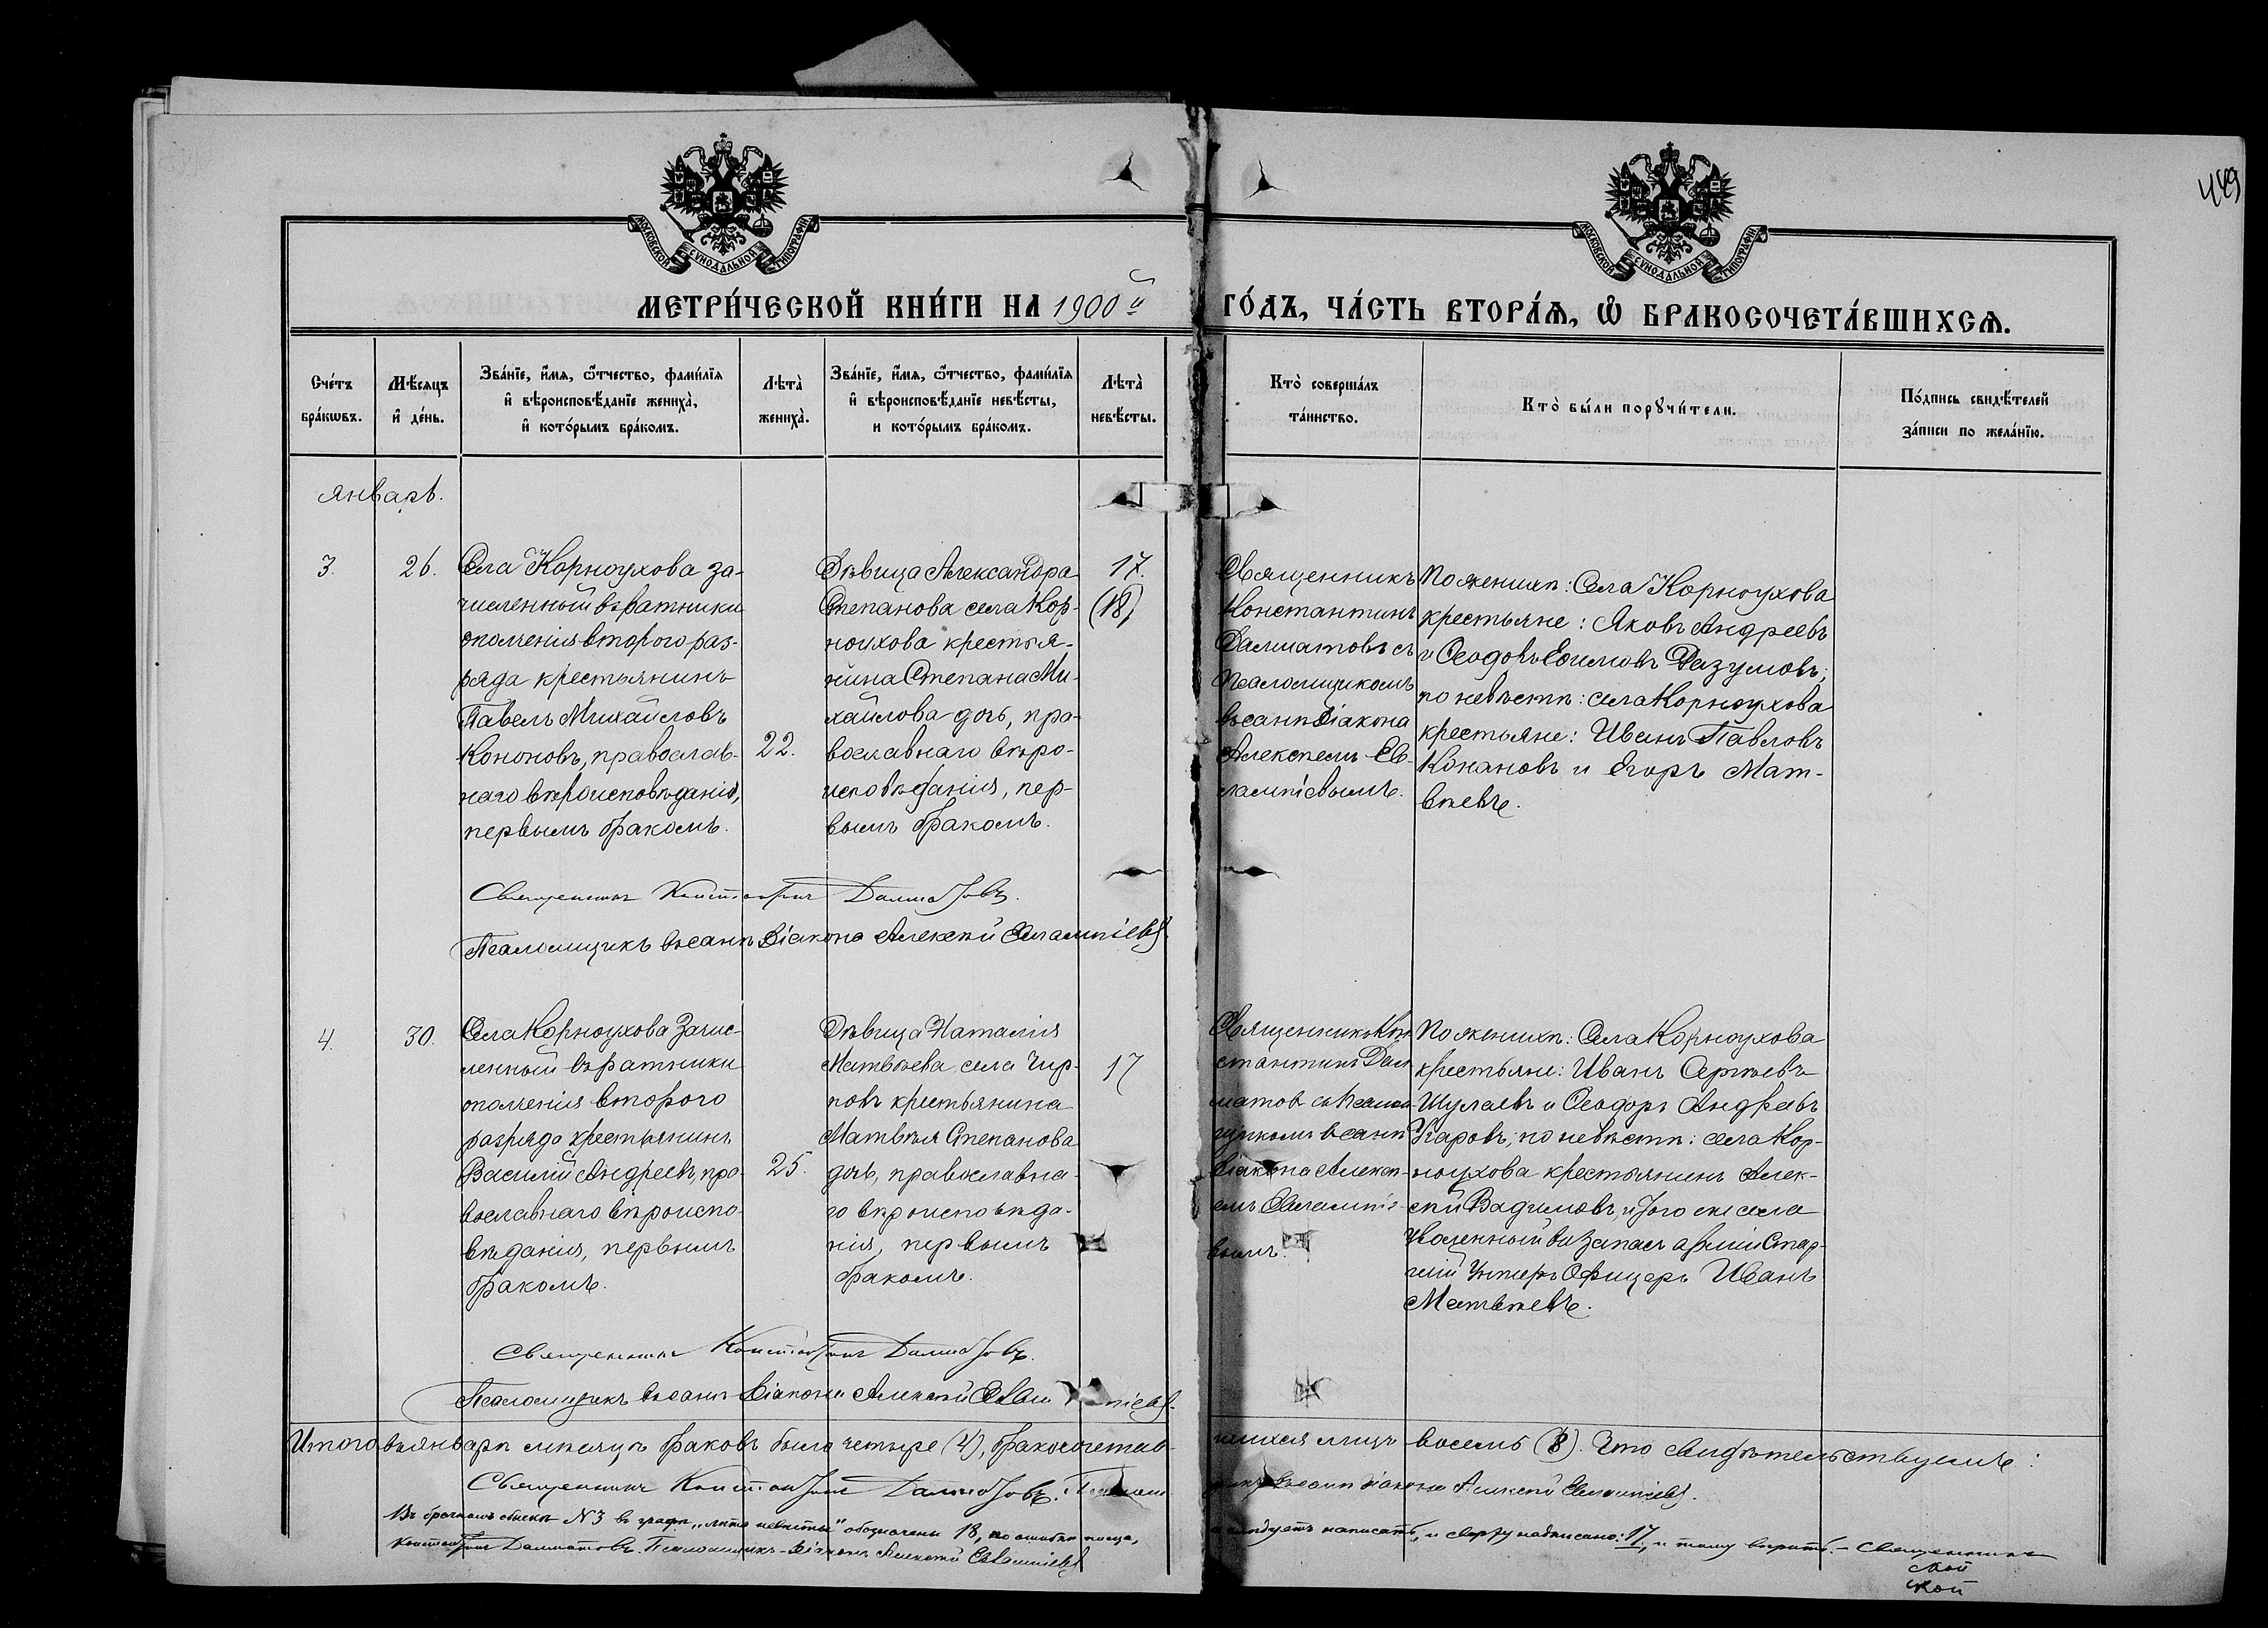 449
МОСКОВСКОЙ СУНОДАЛЬНОЙ ТИПОГРАФІИ
МОСКОВСКОЙ СУНОДАЛЬНОЙ ТИПОГРАФІИ
МЕТРИ́ЧЕСКОЙ КНИ́ГИ НА 1900й ГО́ДЪ, ЧА́СТЬ ВТОРА́Ѧ, Ѡ҆ БРАКОСОЧЕТА́ВШИХСѦ.
Сче́тъ
бра́кѡвъ.
Мѣ́сѧцъ
и҆ де́нь.
Зва́нїе, и҆́мѧ, ѻ҆́тчество, фами́лїѧ
и҆ вѣроисповѣ́данїе жениха̀,
и҆ кото́рымъ бра́комъ.
Лѣта̀
жениха̀.
Зва́нїе, и҆́мѧ, ѻ҆́тчество, фами́лїѧ
и҆ вѣроисповѣ́данїе невѣ́сты,
и кото́рымъ бра́комъ.
Лѣта̀
невѣ́сты.
Кто̀ соверша́лъ
та́инство.
Кто̀ бы́ли порꙋчи́тели.
По́дпись свидѣ́телей
за́писи по жела́нїю.
Январь.
3.
26.
Села Корноухова за-
численный въ ратники
ополченія второго раз-
ряда крестьянинъ
Павелъ Михайловъ
Кононовъ, православ-
наго вѣроисповѣданія,
первымъ бракомъ.
22.
Дѣвица Александра
Степанова села Кор-
ноухова крестья-
нина Степана Ми-
хайлова дочь, пра-
вославнаго вѣро-
исповѣданія, пер-
вымъ бракомъ.
17.
(18)
Священникъ
Константинъ
Далматовъ съ
псаломщикомъ
въ санѣ діакона
Алексѣемъ Ев-
лампіевымъ.
По женихѣ: Села Корноухова
крестьяне: Яковъ Андреевъ
и Ѳеодоръ Ефимовъ Разумовъ;
по невѣстѣ: села Корноухова
крестьяне: Иванъ Павловъ
Конановъ и Егоръ Мат-
вѣевъ.
Священникъ Константинъ Далматовъ.
Псаломщикъ въ санѣ Діакона Алексѣй Евлампіевъ.
4.
30.
Села Корноухова Зачис-
ленный въ ратники
ополченія второго
разряда крестьянинъ
Василій Андреевъ, пра-
вославнаго вѣроиспо-
вѣданія, первымъ
бракомъ.
25.
Дѣвица Наталія
Матвѣева, села Чир-
повъ крестьянина
Матвѣя Степанова
дочь, православна-
го вѣроисповѣда-
нія, первымъ
бракомъ.
17
Священникъ Кон-
стантинъ Дал-
матовъ съ Псалом-
щикомъ въ санѣ
Діакона Алексѣ-
емъ Евлампіе-
вымъ.
По женихѣ: Села Корноухова
крестьяне: Иванъ Сергѣевъ
Шулаевъ и Ѳеодоръ Андреевъ
Харовъ; по невѣстѣ: села Кор-
ноухова крестьянинъ Алек-
сѣй Вадимовъ, и того же села
Уволенный въ запасъ арміи Стар-
шій Унтеръ Офицеръ Иванъ
Матвѣевъ.
Священникъ Константинъ Далматовъ.
Псаломщикъ въ санѣ Діакона Алексѣй Евлампіевъ.
Итого въ январѣ мѣсяцѣ браковъ было четыре (4), бракосочетав-шихся лицъ восемь (8). Что свидѣтельствуемъ:
Священникъ Константинъ Далматовъ. Псаломщикъ въ санѣ діакона Алексѣй Евлампіевъ.
Въ брачномъ обыскѣ №3 въ графѣ „лѣта невѣсты" обозначены 18, по ошибкѣ писца, а слѣдуетъ написать, и сверху надписано: 17, и тому вѣрить. – Священникъ
Константинъ Далматовъ. Псаломщикъ-Діаконъ Алексѣй Евлампіевъ.